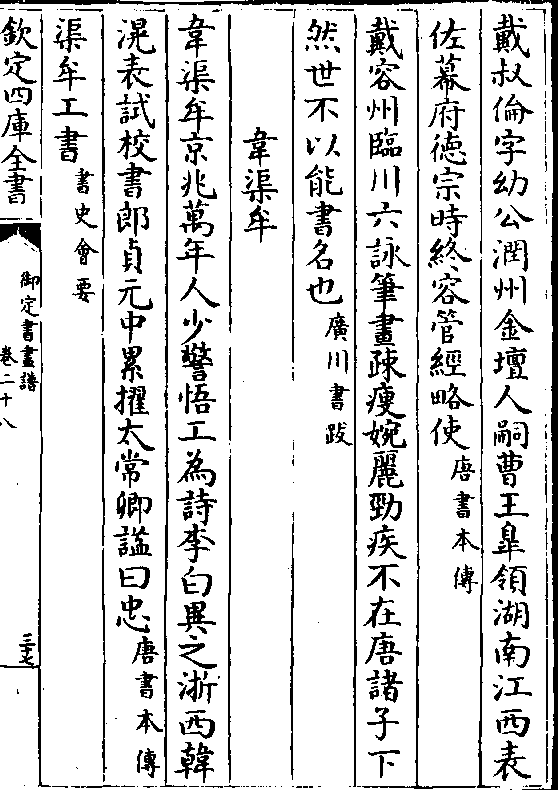 戴叔倫字幼公潤州金壇人嗣曹王臯領湖南江西表
佐幕府徳宗時終容管經略使唐書本傳
戴容州臨川六詠筆畫疎瘦婉麗勁疾不在唐諸子下
然世不以能書名也廣川書跋
韋渠牟
韋渠牟京兆萬年人少警悟工為詩李白異之浙西韓
滉表試校書郎貞元中累擢太常卿諡曰忠唐書本傳
渠牟工書書史會要
欽定四庫全書
御定書畫譜
卷二十八
三十七